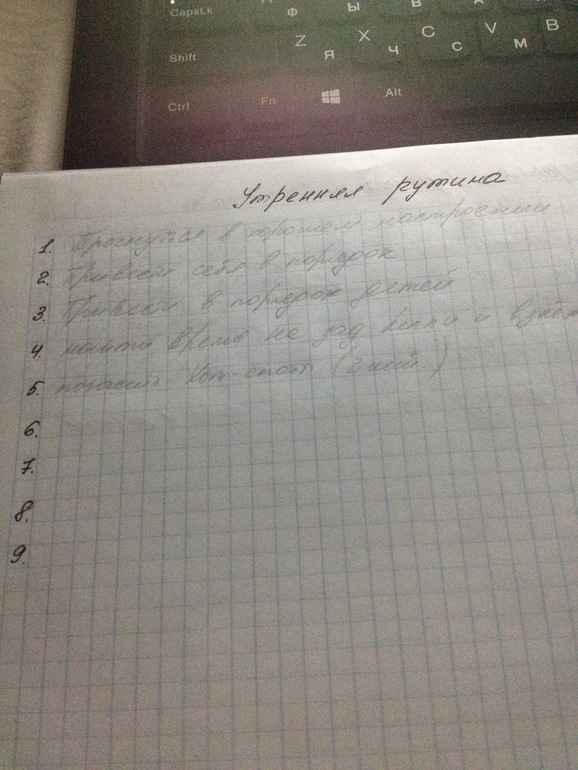 CapsLk Ф Ы В А
Shift Z Я X Ч C С V М B
Ctrl Fn Alt
Утренняя рутина
1. Проснуться в хорошем настроении
2. Привести себя в порядок
3. Привести в порядок детей
4. найти время на зад и
5. погасить "Хот-спот" (3 )
6.
7.
8.
9.